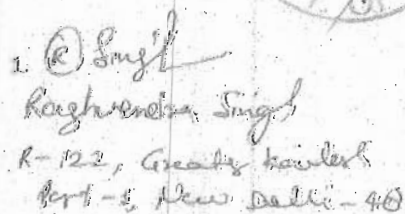 1. R Singh
Raghvendra Singh
R-122, Greater Kailash
Part-1, New Delhi - 48